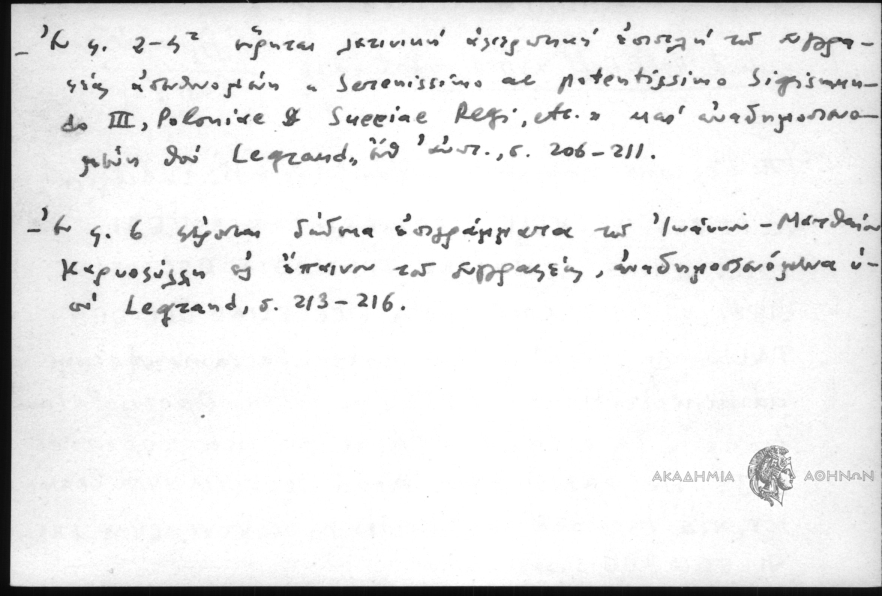 – Ἐν φ. 2–4² εὕρηται λατινικὴ ἀφιερωτικὴ ἐπιστολὴ τοῦ συγγρα-
φέως ἀπευθυνομένη « Serenissimo ac potentissimo Sigismun-
do III, Poloniae & Sueciae Regi, etc. » καὶ ἀναδημοσιευο-
μένη ὑπὸ Legrand, ἔνθ' ἀνωτ., σ. 206–211.
– Ἐν φ. 6 φέρονται δώδεκα ἐπιγράμματα τοῦ Ἰωάννου–Ματθαίου
Καρυοφύλλη εἰς ἔπαινον τοῦ συγγραφέως, ἀναδημοσιευόμενα ὑ-
πὸ Legrand, σ. 213–216.
ΑΚΑΔΗΜΙΑ ΑΘΗΝΩΝ